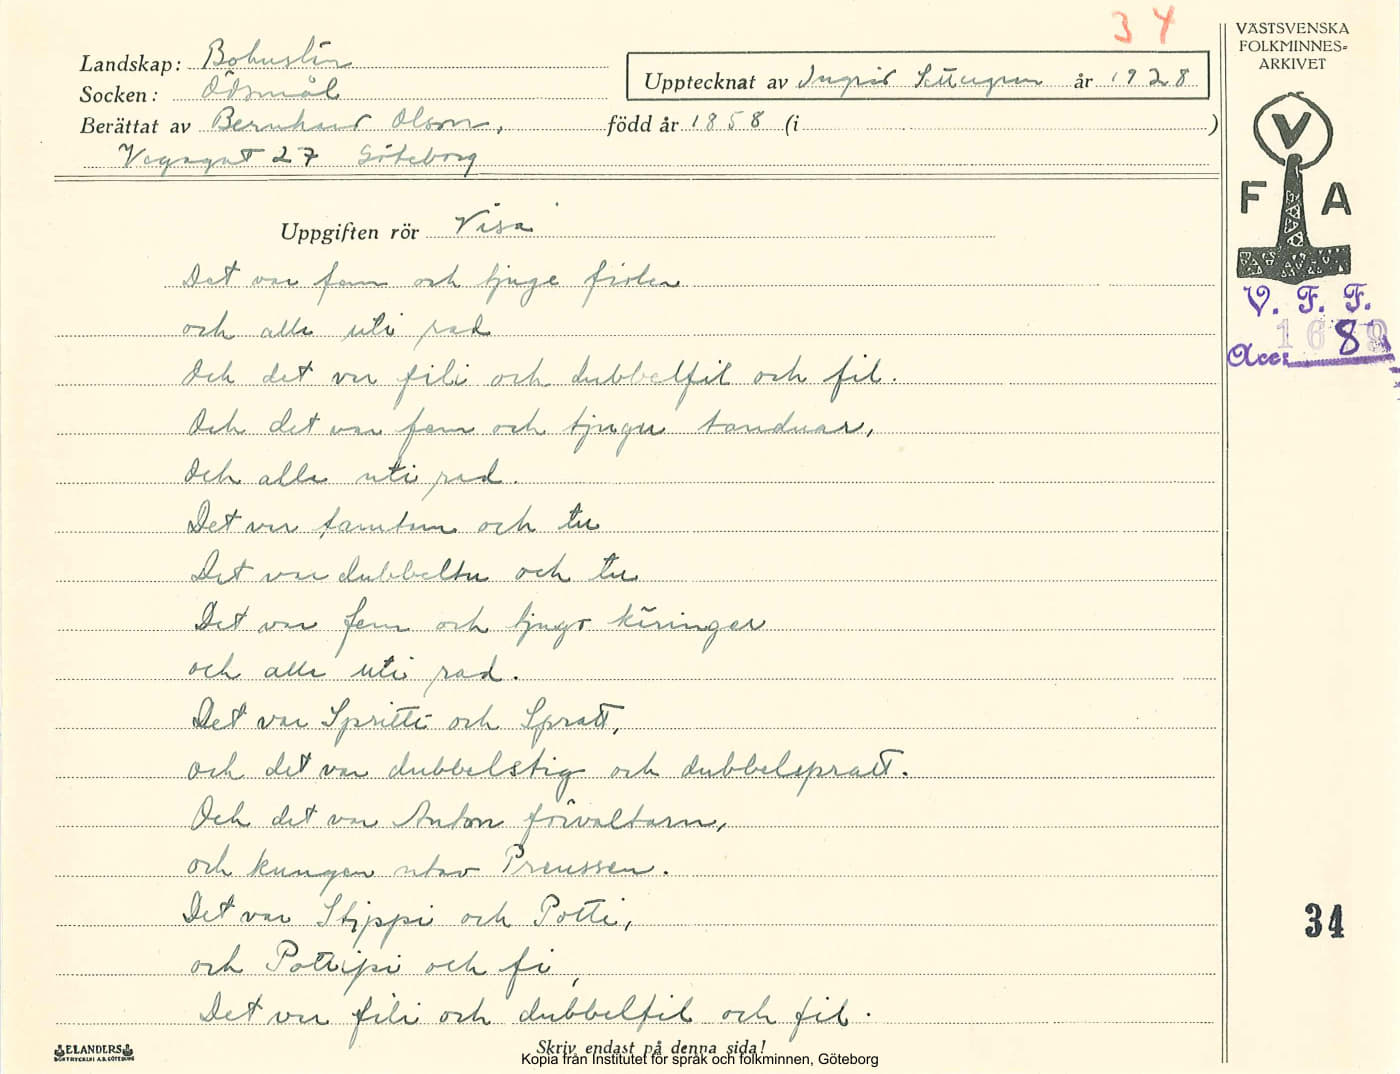 34
VÄSTSVENSKA
FOLKMINNES=
ARKIVET
Landskap: Bohuslän
Socken: Ödsmål
Upptecknat av Ingrid år 1928
Berättat av Bernhard Olson, född år 1858 (i )
Vegagat 27 Göteborg
V
F A
Uppgiften rör Visa
V. F. F.
Acc:
Det var fem och tjuge fisker
och alla uti rad
Och det var fili och dubbelfil och fil.
Och det var fem och tjugu
Och alla uti rad.
Det var tamtam och tu
Det var dubbeltu och tu
Det var fem och tjugo käringer
och alla uti rad.
Det var Spritti och Spratt,
och det var dubbelstig och dubbelspratt.
Och det var Anton förvaltarn,
och kungen utav Preussen.
Det var Stippi och Potti,
34
och Pottipi och fi,
Det var fili och dubbelfil och fil.
ELANDERS
BOKTRYCKERI A.B. GÖTEBORG
Skriv endast på denna sida!
Kopia från Institutet för språk och folkminnen, Göteborg